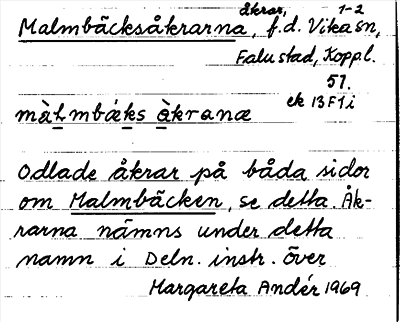 åkrar, 1-2
Malmbäcksåkrarna, f.d. Vika sn,
Falu stad, Kopp.l.
51.
ek 13F1i
màɫmbä́ks àkranæ
Odlade åkrar på båda sidor
om Malmbäcken, se detta. Åk-
rarna nämns under detta
namn i Deln. instr. över
Margareta Andér 1969